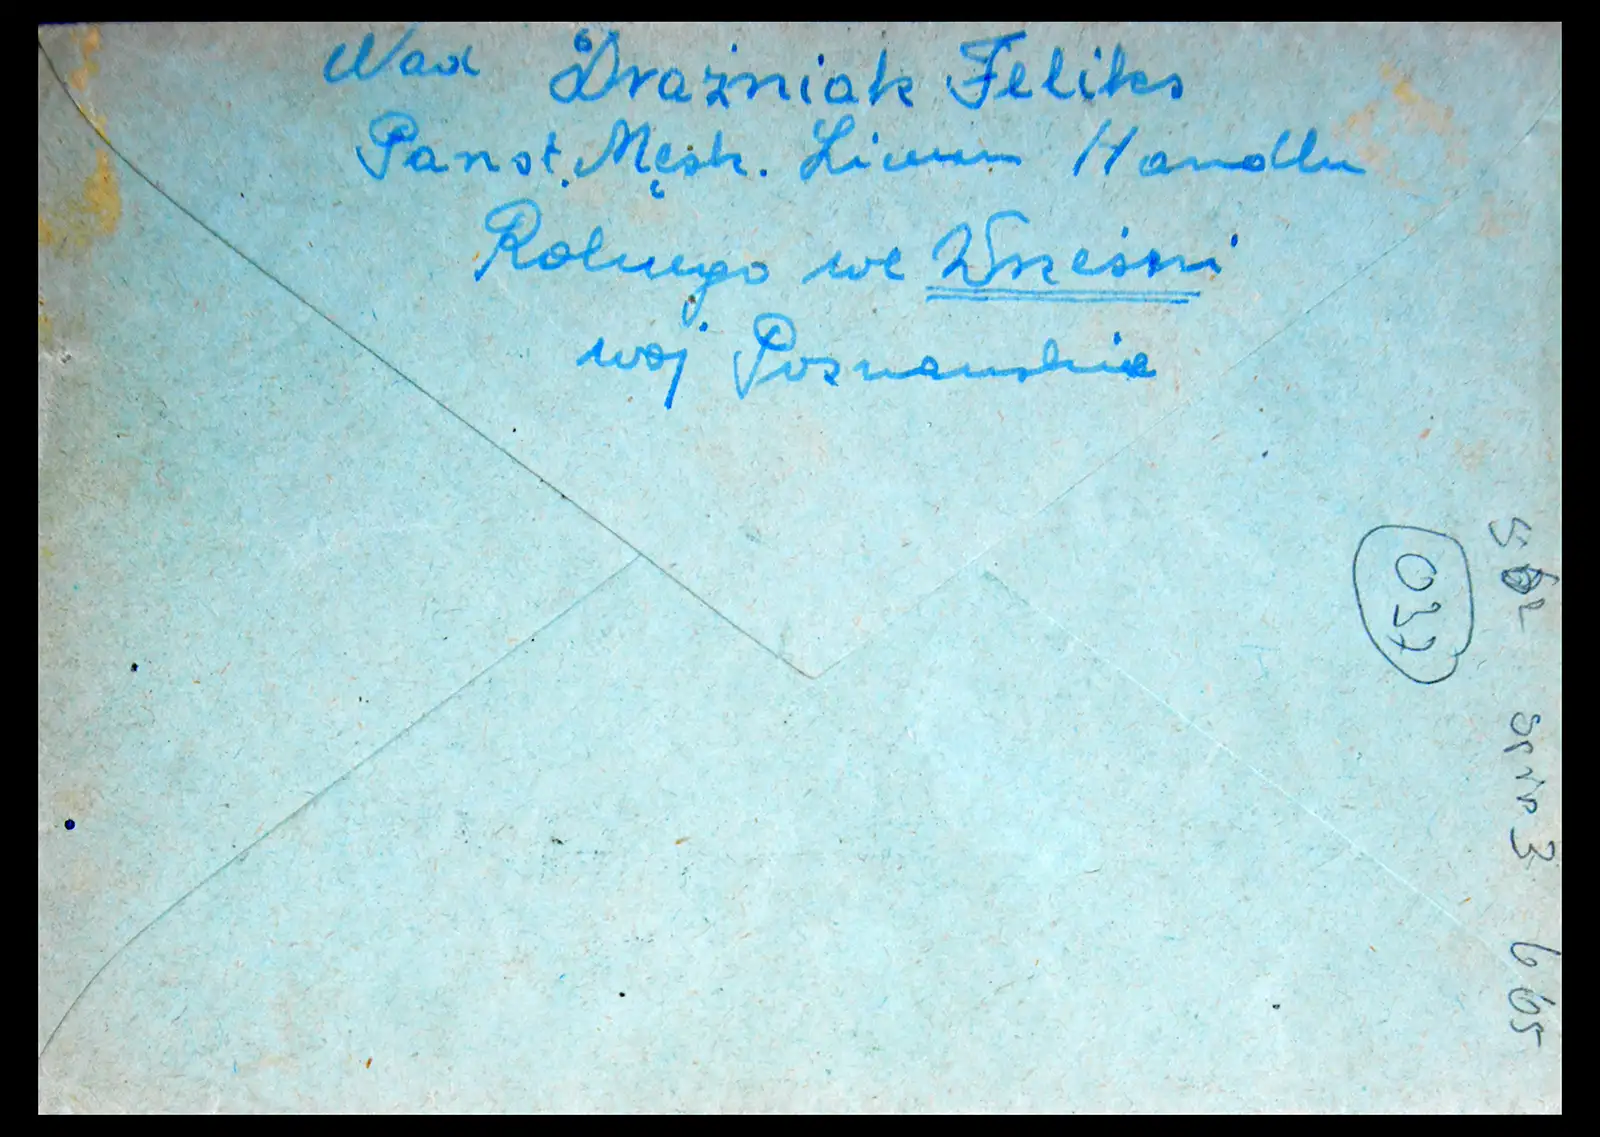 Nad Drażniak Feliks
Panst. Męsk. Liceum Handlu
Rolnego we Wrześni
woj Poznanskie
037
3